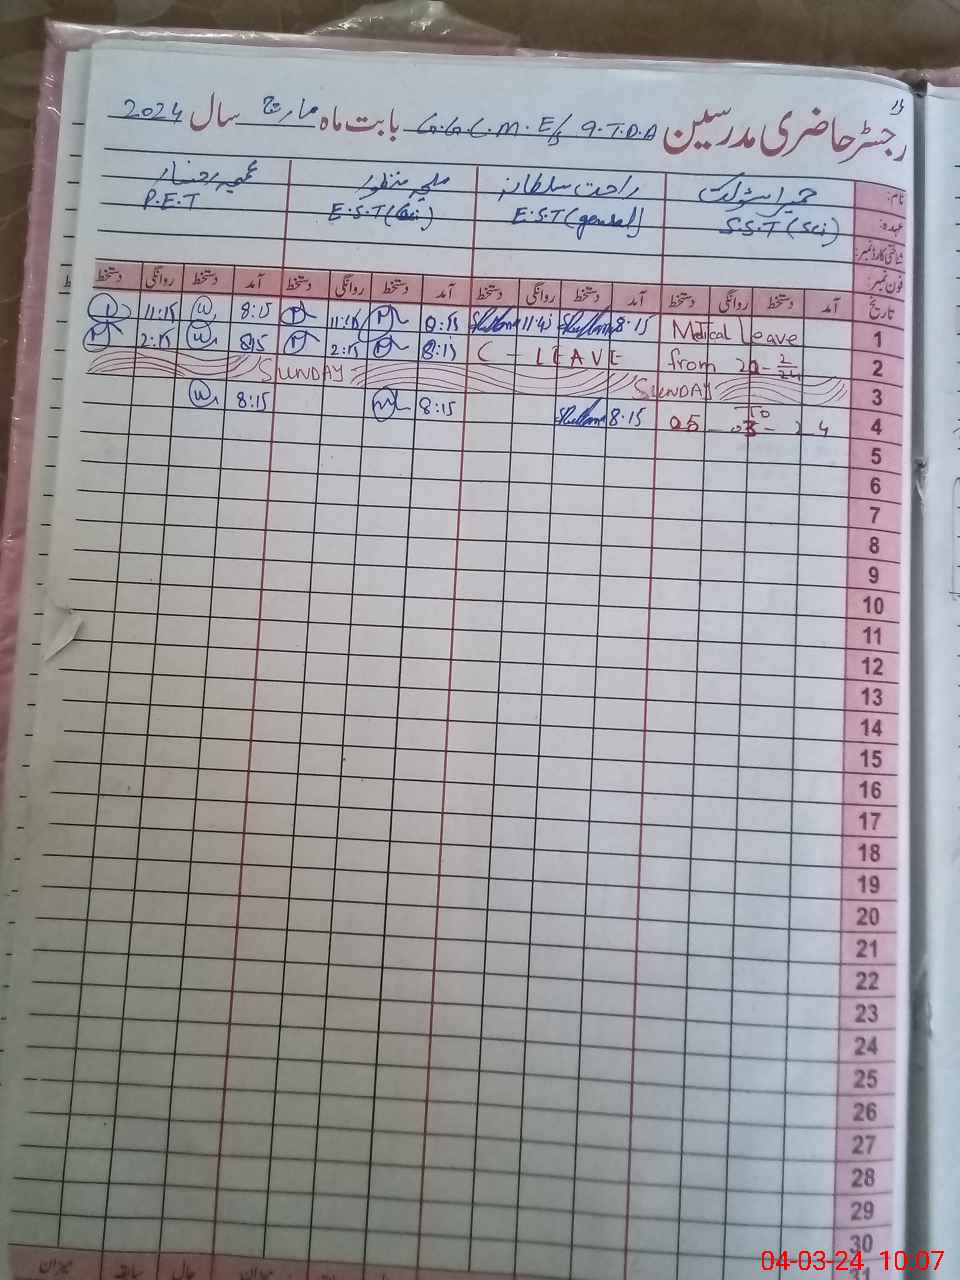 رجسٹر حاضری مدرسین G.G.C.M.E/S 9.T.D.A بابت ماہ مارچ سال 2024
نام: حمیرا شوکت راحت سلطانہ ملیحہ منظور
عہدہ: S.S.T (Sci) E.S.T (general) E.S.T P.E.T
شناختی کارڈ نمبر:
فون نمبر:
تاریخ آمد دستخط روانگی دستخط آمد دستخط روانگی دستخط آمد دستخط روانگی دستخط آمد دستخط روانگی دستخط
1 Medical Leave 8:15 11:45 8:15 11:15 8:15 11:15
2 from C - LEAVE 8:15 2:15 8:15 2:15
3 SUNDAY SUNDAY
4 To 05 - 03 - 24 8:15 8:15 8:15
5
6
7
8
9
10
11
12
13
14
15
16
17
18
19
20
21
22
23
24
25
26
27
28
29
30
31
میزان سابقہ حال میزان
04-03-24 10:07